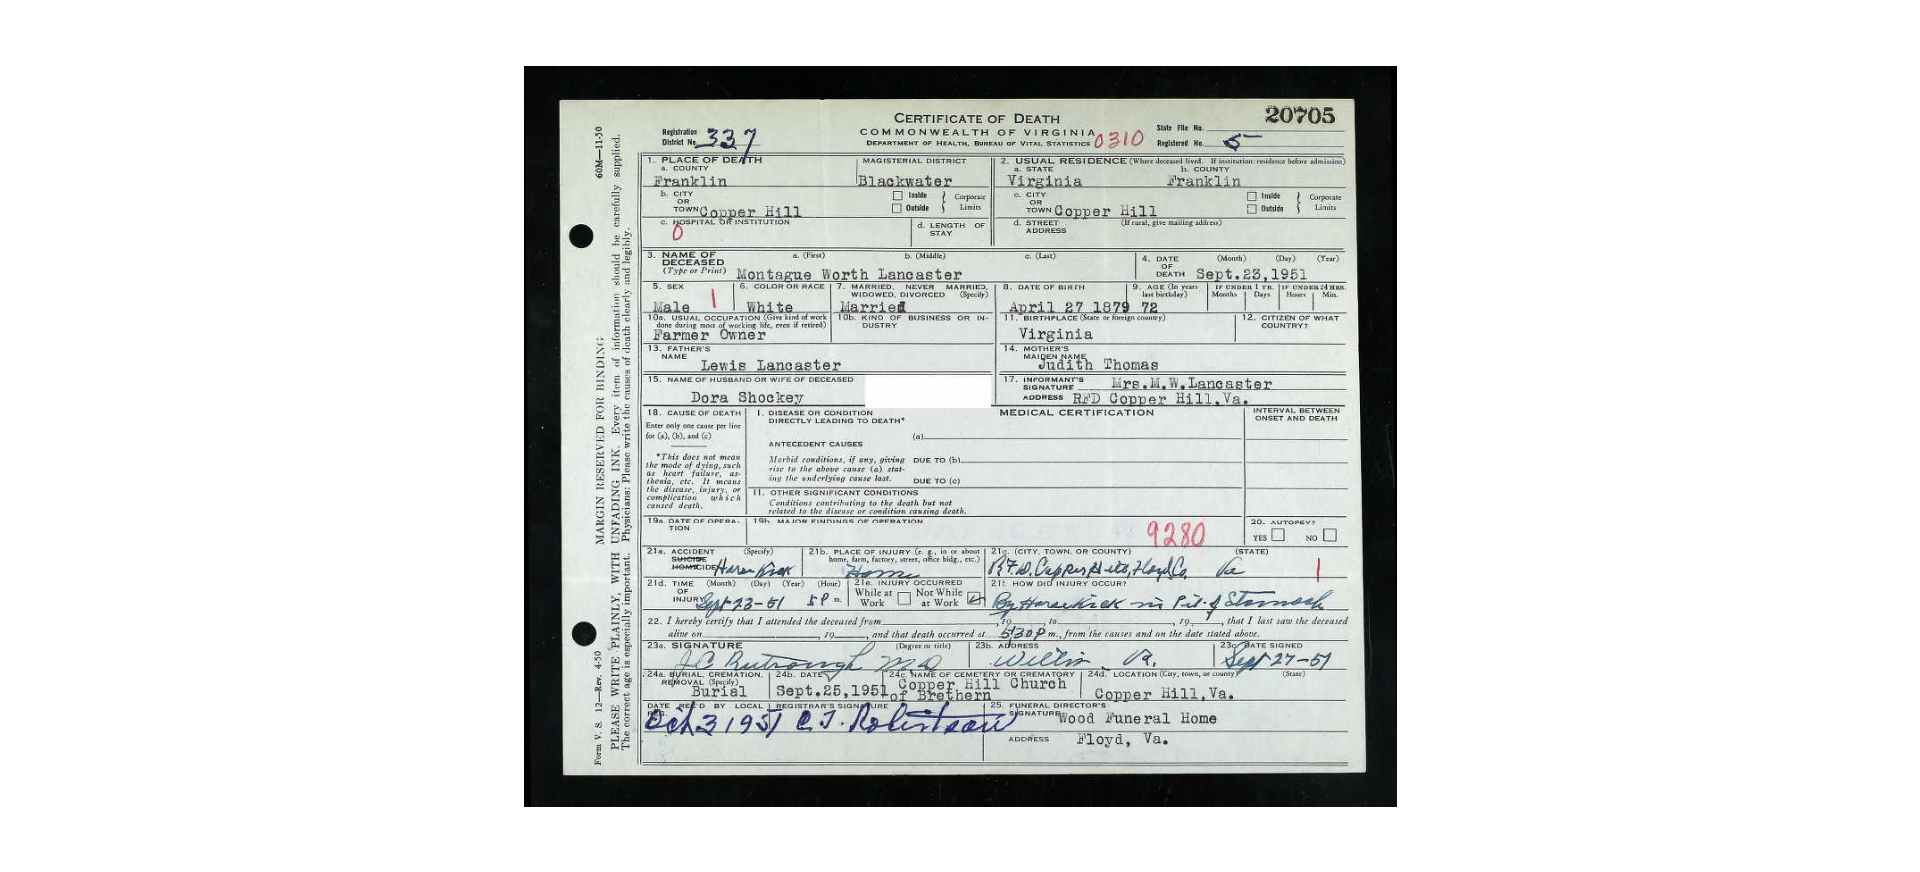 20705
CERTIFICATE OF DEATH
COMMONWEALTH OF VIRGINIA
DEPARTMENT OF HEALTH, BUREAU OF VITAL STATISTICS 0310
Registration District No. 337
State File No.
Registered No. 5
1. PLACE OF DEATH
a. COUNTY
Franklin
MAGISTERIAL DISTRICT
Blackwater
2. USUAL RESIDENCE (Where deceased lived. If institution: residence before admission)
a. STATE
Virginia
b. COUNTY
Franklin
b. CITY OR TOWN Copper Hill
Inside
Outside
Corporate Limits
c. CITY OR TOWN Copper Hill
Inside
Outside
Corporate Limits
c. HOSPITAL OR INSTITUTION
0
d. LENGTH OF STAY
d. STREET ADDRESS
(If rural, give mailing address)
3. NAME OF DECEASED
(Type or Print)
a. (First) b. (Middle) c. (Last)
Montague Worth Lancaster
4. DATE OF DEATH
(Month) (Day) (Year)
Sept.23,1951
5. SEX
Male 1
6. COLOR OR RACE
White
7. MARRIED, NEVER MARRIED, WIDOWED, DIVORCED (Specify)
Married
8. DATE OF BIRTH
April 27 1879
9. AGE (In years last birthday)
72
IF UNDER 1 YR.
Months Days
IF UNDER 24 HRS.
Hours Min.
10a. USUAL OCCUPATION (Give kind of work done during most of working life, even if retired)
Farmer Owner
10b. KIND OF BUSINESS OR INDUSTRY
11. BIRTHPLACE (State or foreign country)
Virginia
12. CITIZEN OF WHAT COUNTRY?
13. FATHER'S NAME
Lewis Lancaster
14. MOTHER'S MAIDEN NAME
Judith Thomas
15. NAME OF HUSBAND OR WIFE OF DECEASED
Dora Shockey
17. INFORMANT'S SIGNATURE Mrs.M.W.Lancaster
ADDRESS RFD Copper Hill,Va.
18. CAUSE OF DEATH
Enter only one cause per line for (a), (b), and (c)
*This does not mean the mode of dying, such as heart failure, asthenia, etc. It means the disease, injury, or complication which caused death.
MEDICAL CERTIFICATION
INTERVAL BETWEEN ONSET AND DEATH
I. DISEASE OR CONDITION DIRECTLY LEADING TO DEATH*
(a)
ANTECEDENT CAUSES
Morbid conditions, if any, giving rise to the above cause (a) stating the underlying cause last.
DUE TO (b)
DUE TO (c)
II. OTHER SIGNIFICANT CONDITIONS
Conditions contributing to the death but not related to the disease or condition causing death.
19a. DATE OF OPERATION
19b. MAJOR FINDINGS OF OPERATION
9280
20. AUTOPSY?
YES NO
21a. ACCIDENT SUICIDE HOMICIDE (Specify)
Horse Kick
21b. PLACE OF INJURY (e. g., in or about home, farm, factory, street, office bldg., etc.)
Home
21c. (CITY, TOWN, OR COUNTY) (STATE)
R.F.D. Copper Hill, Floyd Co. Va
1
21d. TIME OF INJURY (Month) (Day) (Year) (Hour)
Sept 23-51 5 P m.
21e. INJURY OCCURRED
While at Work
Not While at Work
21f. HOW DID INJURY OCCUR?
By Horse Kick in Pit of Stomach
22. I hereby certify that I attended the deceased from , 19 , to , 19 , that I last saw the deceased
alive on , 19 , and that death occurred at 5:30 P m., from the causes and on the date stated above.
23a. SIGNATURE (Degree or title)
J C Rutrough M D
23b. ADDRESS
Willis Va.
23c. DATE SIGNED
Sept 27-51
24a. BURIAL, CREMATION, REMOVAL (Specify)
Burial
24b. DATE
Sept.25,1951
24c. NAME OF CEMETERY OR CREMATORY
Copper Hill Church of Brethern
24d. LOCATION (City, town, or county) (State)
Copper Hill,Va.
DATE REC'D BY LOCAL REG.
Oct 3 1951
REGISTRAR'S SIGNATURE
C. J. Robertson
25. FUNERAL DIRECTOR'S SIGNATURE Wood Funeral Home
ADDRESS Floyd, Va.
Form V. S. 12—Rev. 4-50 60M—11-50
MARGIN RESERVED FOR BINDING
PLEASE WRITE PLAINLY, WITH UNFADING INK. Every item of information should be carefully supplied.
The correct age is especially important. Physicians: Please write the causes of death clearly and legibly.